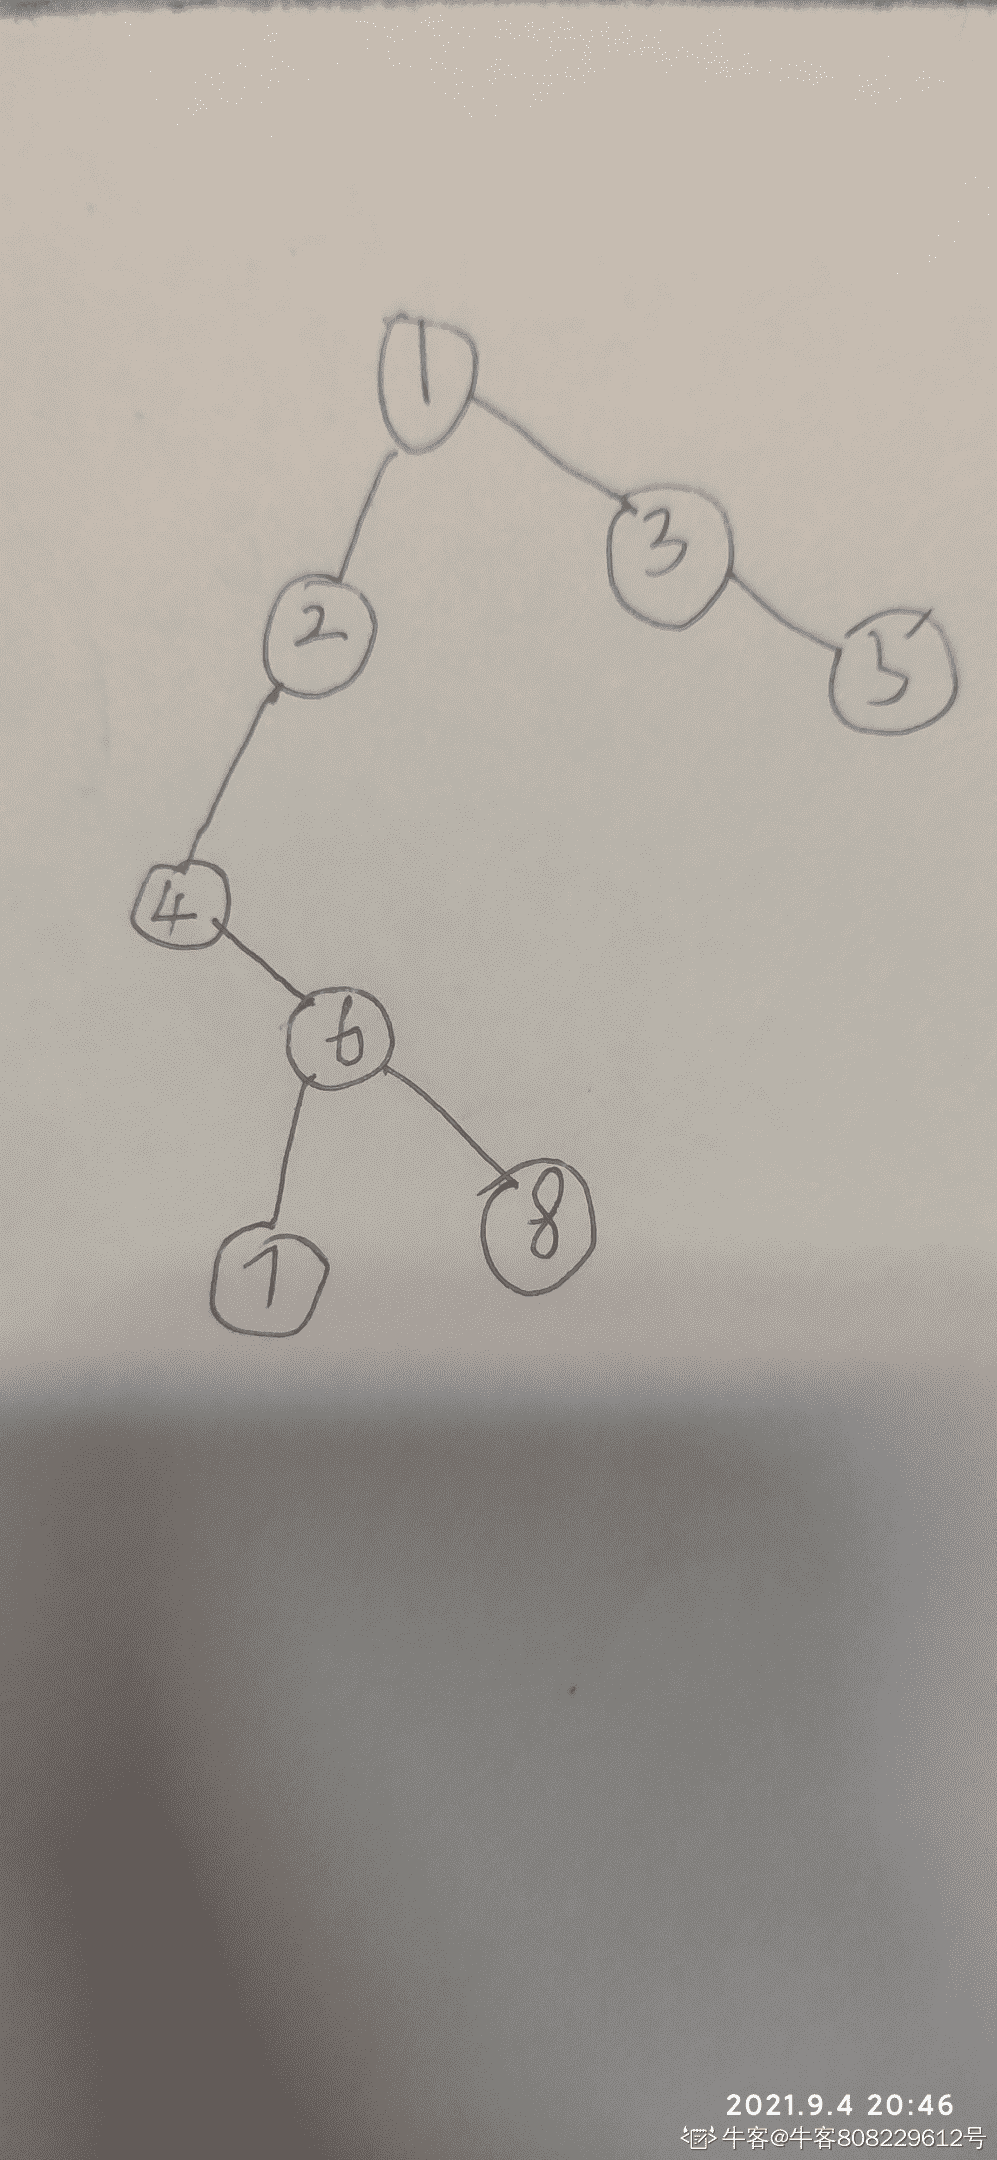 1
3
2
5
4
6
7
8
2021.9.4 20:46
牛客@牛客808229612号